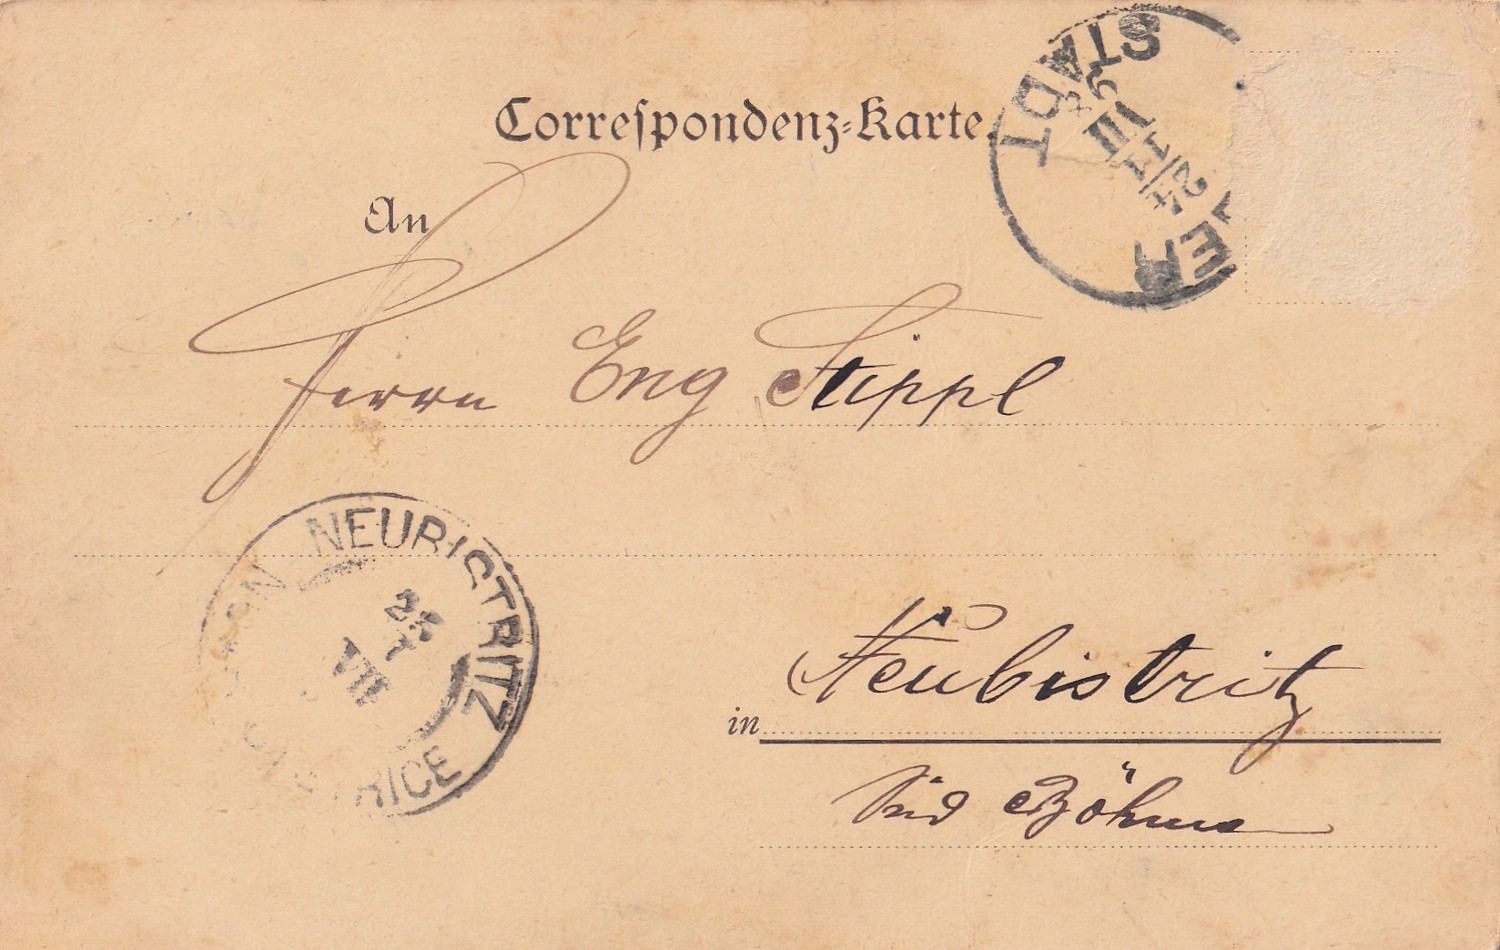 Correspondenz-Karte.
An
Herrn Eng Stippl
in Neubistritz
Süd Böhmen
STADT
24/7
NEUBISTRITZ
25
VII